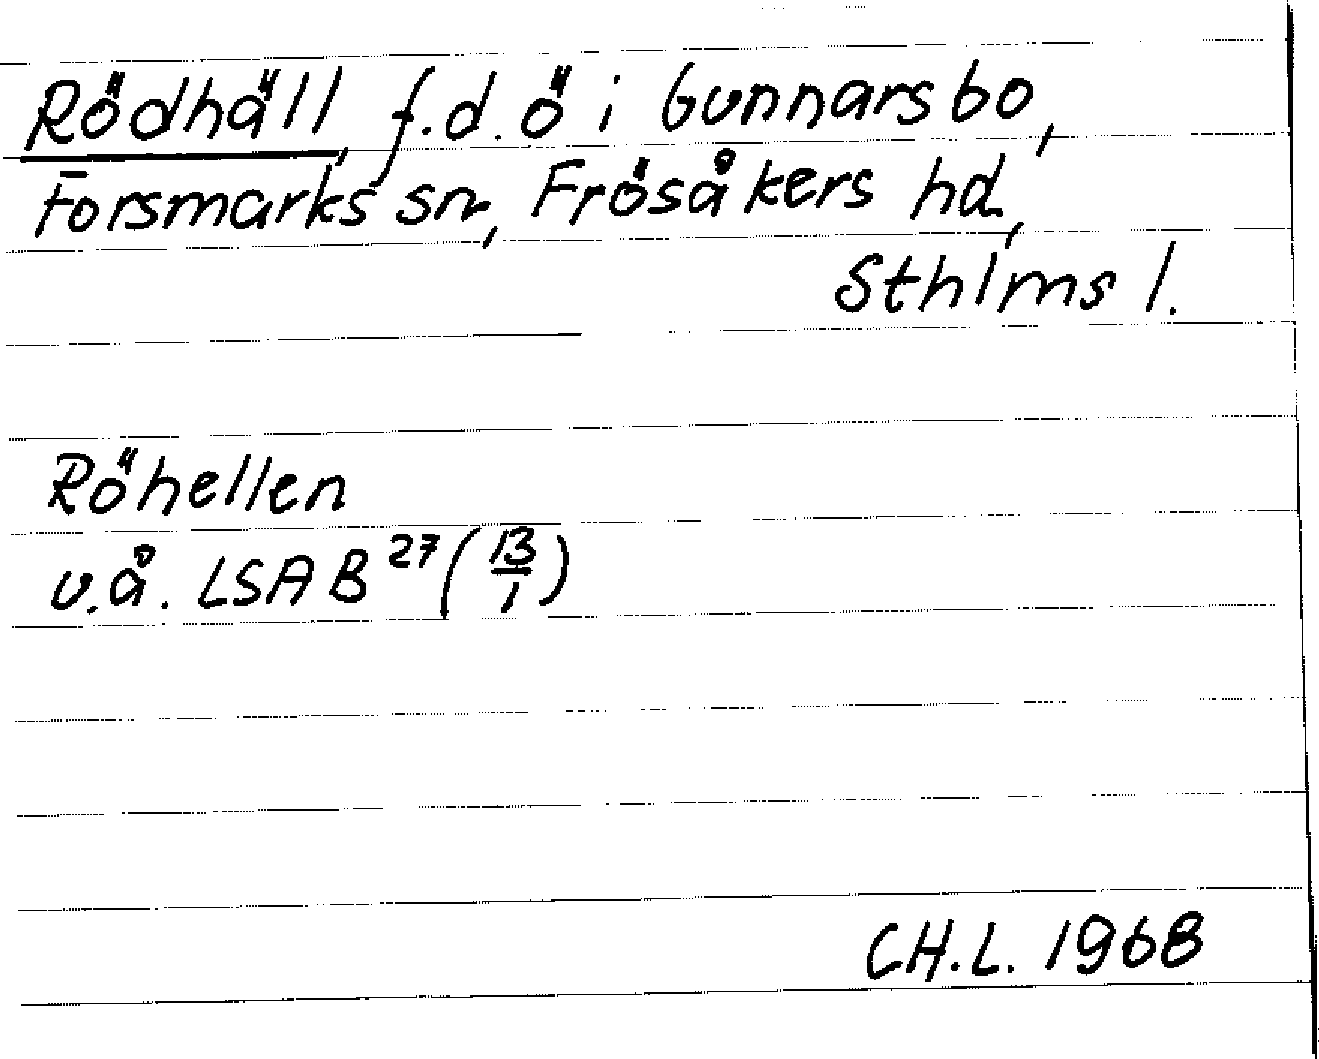 Rödhäll, f.d. ö i Gunnarsbo,
Forsmarks sn, Frösåkers hd,
Sthlms l.
Röhellen
u.å. LSA B 27 (13/1)
CH.L. 1968